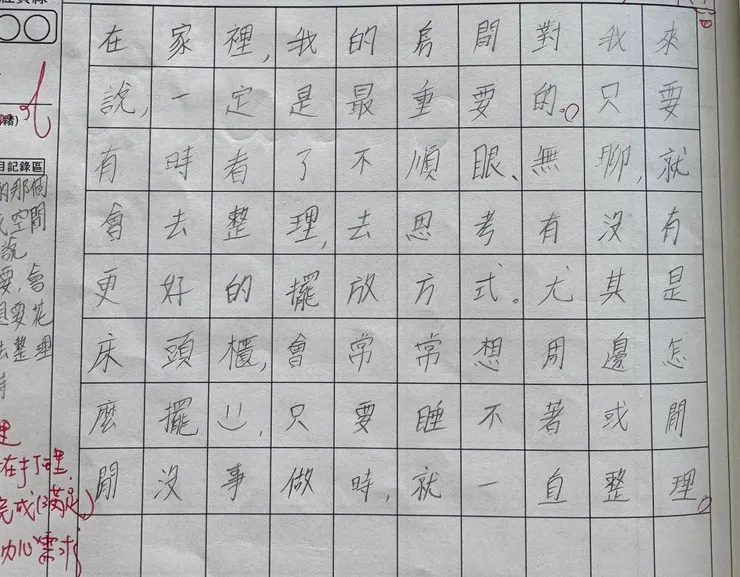 在家裡,我的房間對我來
說,一定是最重要的。只要
有時看了不順眼、無聊,就
會去整理,去思考有沒有
更好的擺放方式。尤其是
床頭櫃,會常常想周邊怎
麼擺:),只要睡不著或閒
閒沒事做時,就一直整理。
目記錄區
的那個
空間
說
要,會
要花
去整理
時
理
在打理.
完成(滿足)
加心需求